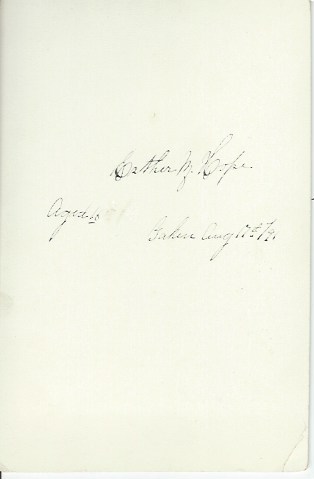 Esther M. Hope.
Aged 16
Taken Aug 17th/91